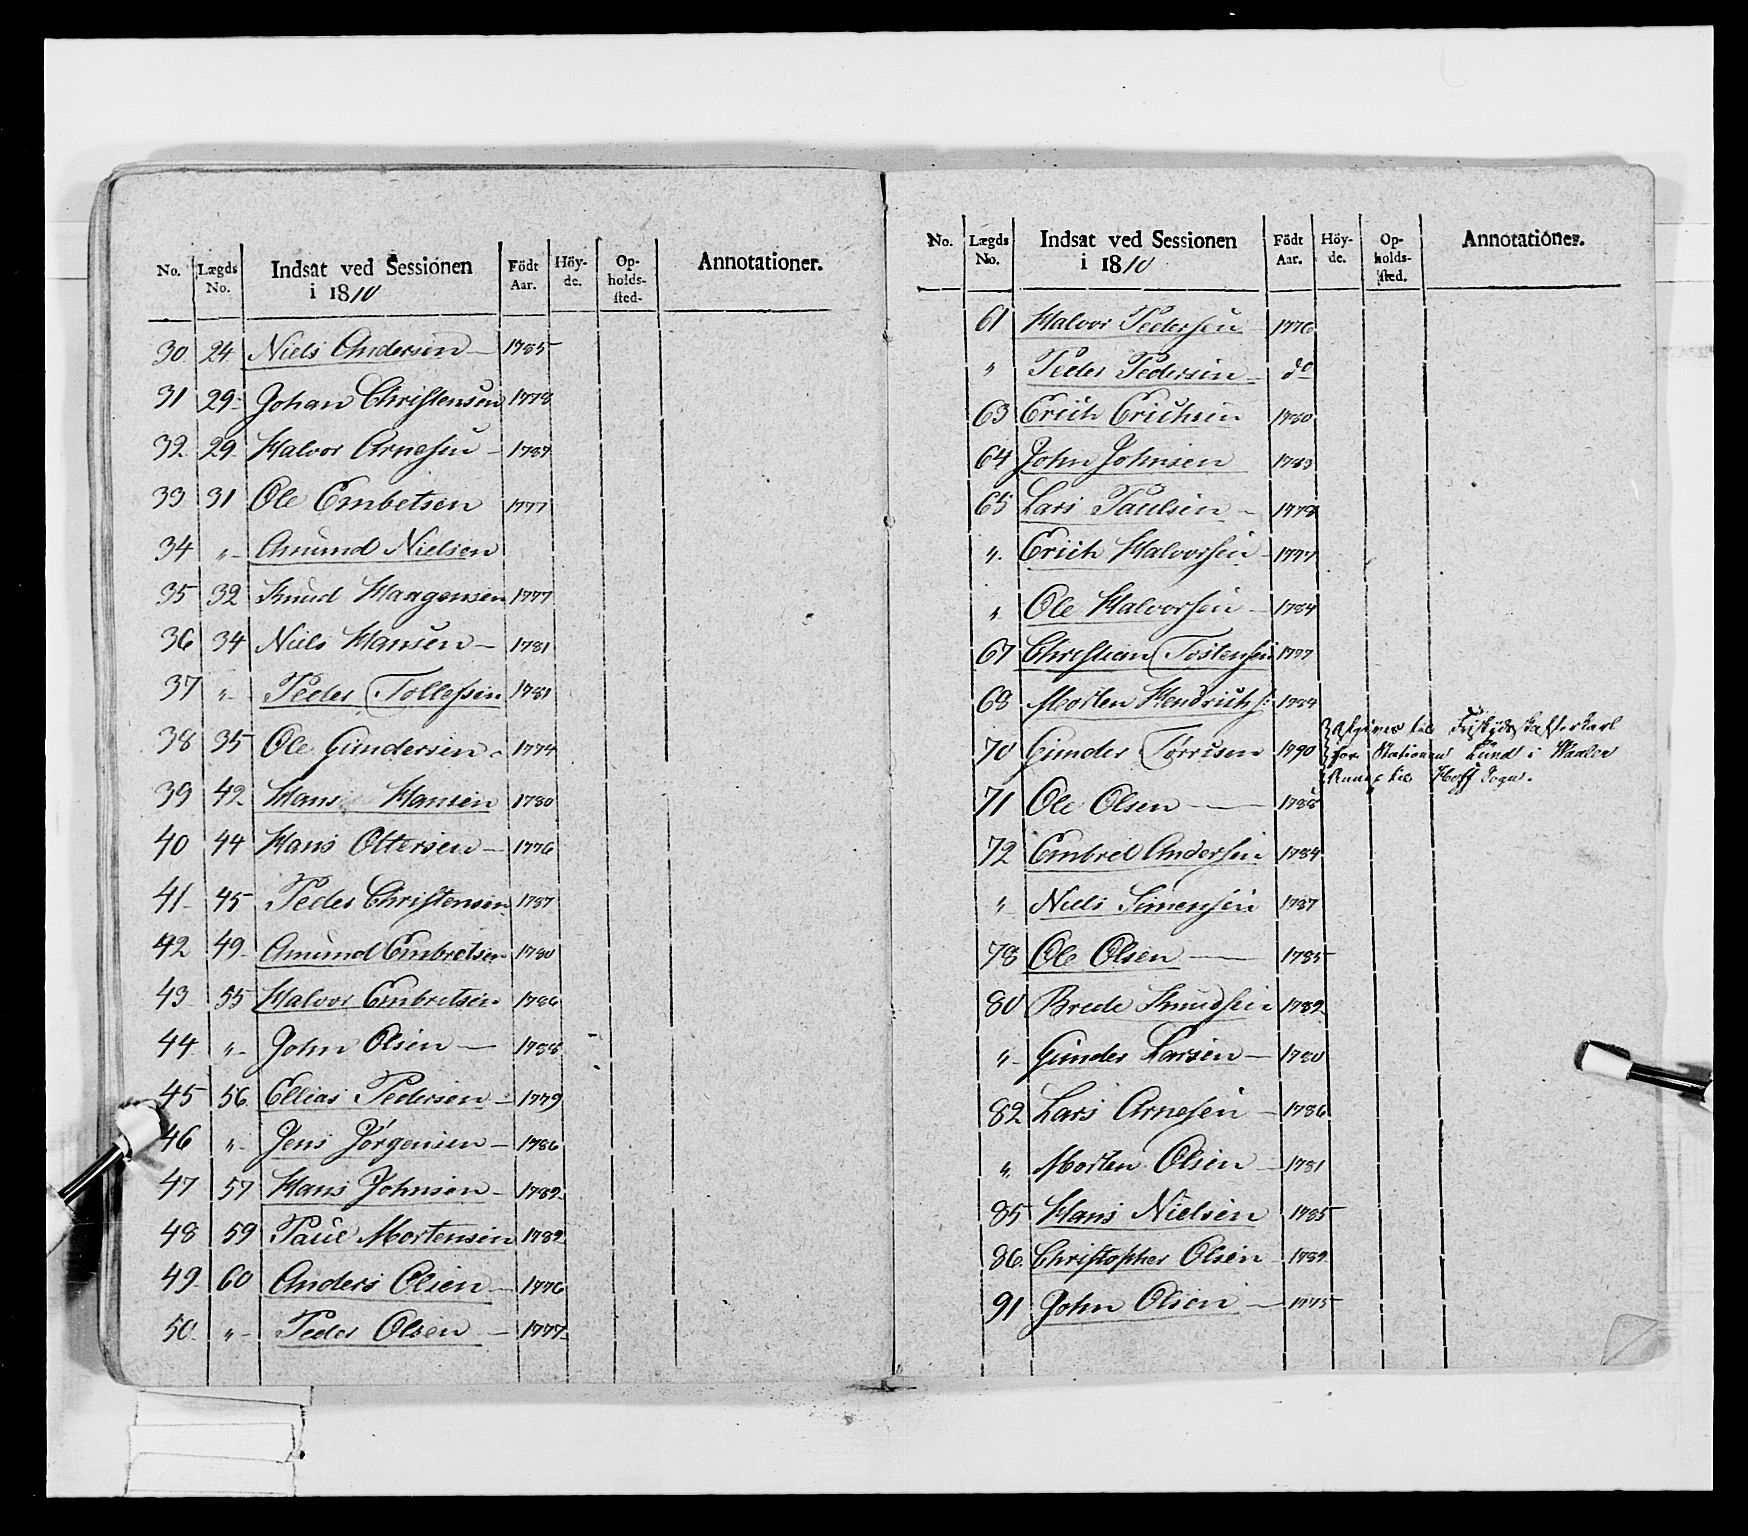 No. Lægds No. Indsat ved Sessionen i 1810 Födt Aar. Höy-de. Op-holds-sted. Annotationer.
30 24 Niels Andersen — 1785
31 29 Johan Christensen 1778
32 29 Halvor Arnesen — 1787
33 31 Ole Embetsen 1777
34 " Amund Nielsen
35 32 Knud Haagensen 1777
36 34 Niels Hansen — 1781
37 " Peder Tollefsen 1781
38 35 Ole Gundersen 1774
39 42 Hans Hansen 1780
40 44 Hans Ottersen — 1776
41 45 Peder Christensen 1787
42 49 Amund Embretsen 1780
43 55 Halvor Embretsen 1786
44 " John Olsen — 1788
45 56 Ellias Pedersen — 1779
46 " Jens Jörgensen — 1786
47 57 Hans Johnsen — 1782
48 59 Paul Mortensen 1782
49 60 Anders Olsen — 1776
50 " Peder Olsen — 1777
No. Lægds No. Indsat ved Sessionen i 1810 Födt Aar. Höy-de. Op-holds-sted. Annotationer.
61 Halvor Pedersen 1776
" Peder Pedersen do
63 Erich Erichsen 1780
64 John Johnsen 1783
65 Lars Paulsen
" Erich Halvorsen 1777
" Ole Halvorsen — 1784
67 Christian Tostensen 1777
68 Morten Hendrichs: 1784
70 Gunder Torrisen 1790 Afgives til Skafferkarl
for Stationen Lund i Waaler
Annex til Hoff Sogn.
71 Ole Olsen — 1788
72 Embret Andersen 1784
" Niels Simensen 1787
78 Ole Olsen — 1785
80 Brede Knudsen 1782
" Gunder Larsen — 1780
82 Lars Arnesen — 1786
" Morten Olsen — 1781
85 Hans Nielsen 1785
86 Christopher Olsen — 1782
91 John Olsen — 1775